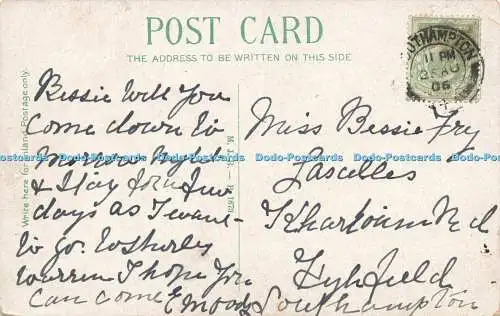 POST CARD
THE ADDRESS TO BE WRITTEN ON THIS SIDE
Write here for Inland Postage only.
SOUTHAMPTON
11 PM
AU
06
Bessie Will You
Come down to
night
& Stay for
days as I want
to go to Shirley
Warren I hope You
can come E Moody
Miss Bessie Fry
Lascelles
Khartoum Rd
Highfield
Southampton
Dodo-Postcards Dodo-Postcards Dodo-Postcards Dodo-Postcards Dodo-Postcards Dodo-Postcards